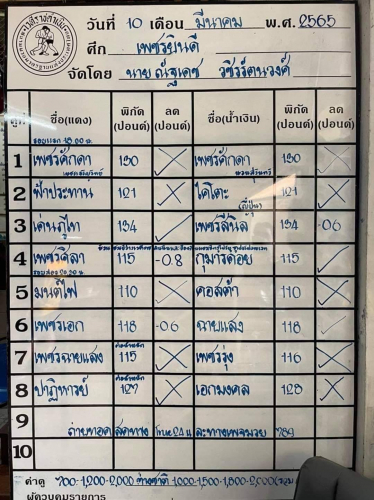 วันที่ 10 เดือน มีนาคม พ.ศ. 2565
ศึก เพชรยินดี
จัดโดย นายณัฐเดช วชิรรัตนวงศ์
คู่ที่ ชื่อ(แดง) พิกัด (ปอนด์) ลด (ปอนด์) ชื่อ(น้ำเงิน) พิกัด (ปอนด์) ลด (ปอนด์)
รอบแรก 18.00 น.
1 เพชรศักดา 130 เพชรศักดา 130
2 ฟ้าประทาน 121 ไคโตะ 121
(ญี่ปุ่น)
3 เด่นภูไท 134 134 -0.6
4 เพชรศิลา 115 -0.8 กุมารดอย 115
รอบสอง 20.30 น.
5 มนต์ไฟ 110 คอสต้า 110
6 เพชรเอก 118 -0.6 ฉายแสง 118
7 เพชรฉายแสง 115 เพชรรุ่ง 116
8 ปาฏิหารย์ 127 เอกมงคล 128
9 ถ่ายทอดสดทาง True24 และทางเพจมวย 789
10
ค่าดู 700-1,200-2,000 ต่างชาติ 1,000-1,500-1,800-2,000
ผู้ควบคุมรายการ